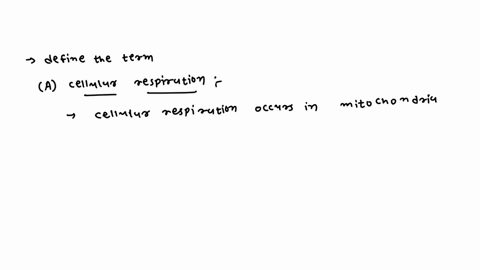 → define the term
(A) cellular respiration :-
→ cellular respiration occurs in mitochondria